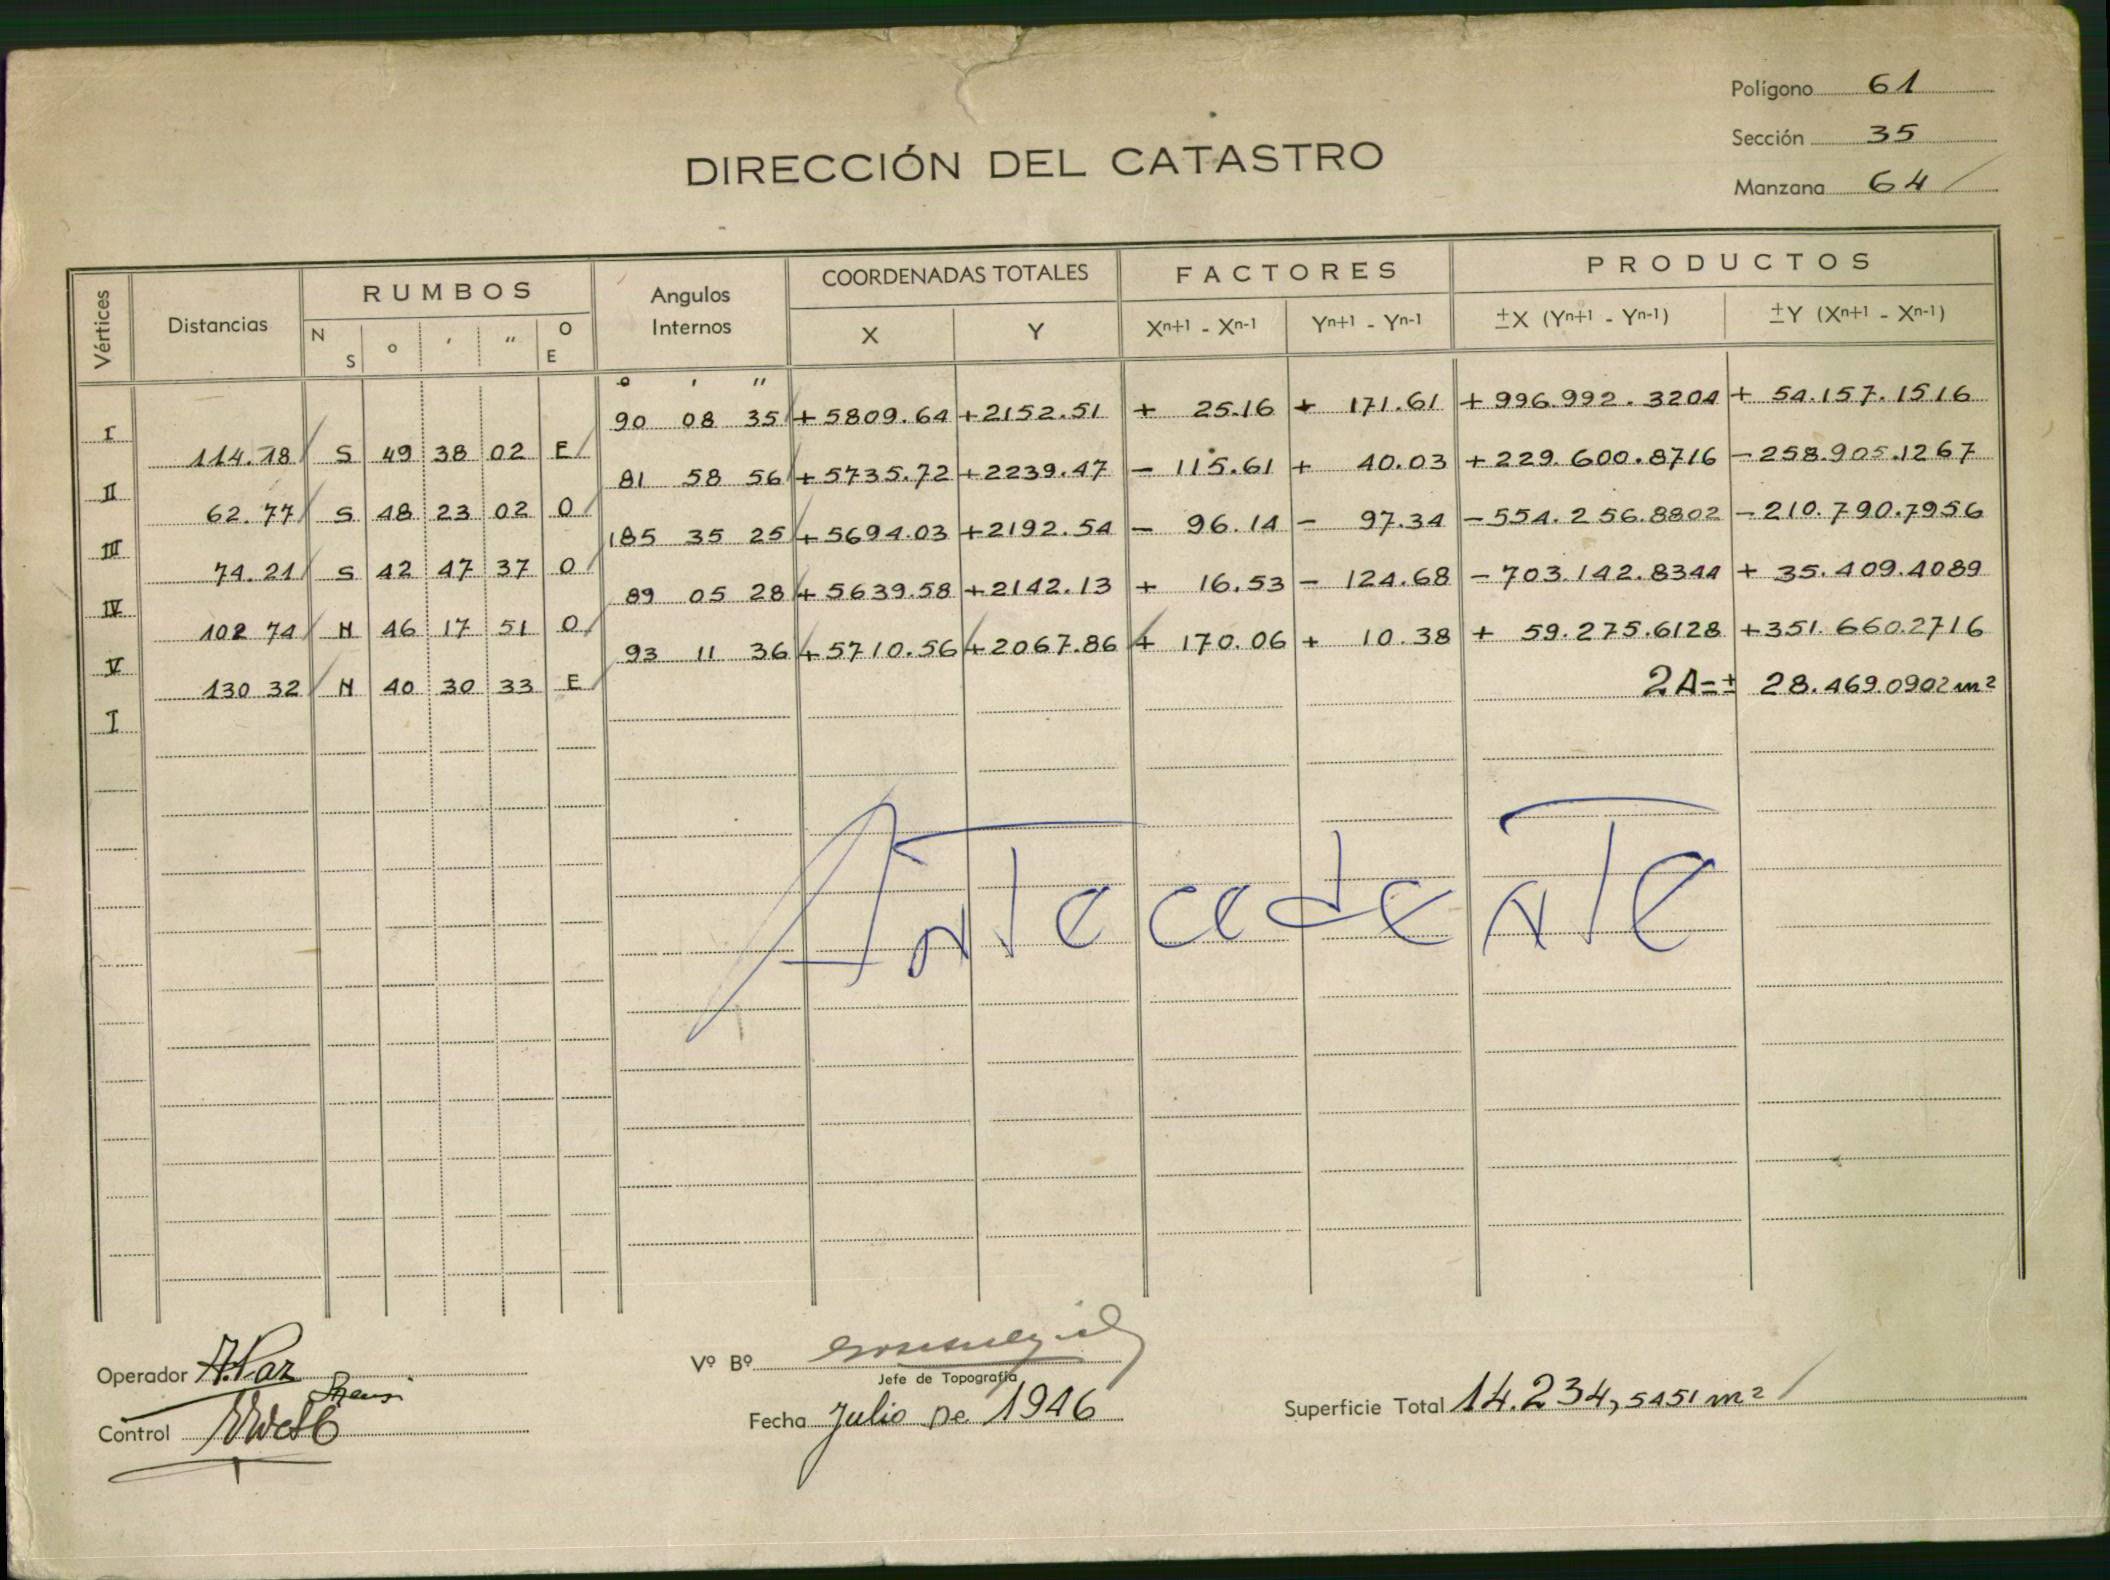 Polígono 61
Sección 35
Manzana 64
DIRECCIÓN DEL CATASTRO
Vértices Distancias RUMBOS Angulos Internos COORDENADAS TOTALES FACTORES PRODUCTOS
N S o ' " O E X Y Xn+1 - Xn-1 Yn+1 - Yn-1 ±X (Yn+1 - Yn-1) ±Y (Xn+1 - Xn-1)
o ' "
I 90 08 35 +5809.64 +2152.51 + 25.16 + 171.61 +996.992.3204 + 54.157.1516
114.18 S 49 38 02 E
II 81 58 56 +5735.72 +2239.47 - 115.61 + 40.03 +229.600.8716 -258.905.1267
62.77 S 48 23 02 O
III 185 35 25 +5694.03 +2192.54 - 96.14 - 97.34 -554.256.8802 -210.790.7956
74.21 S 42 47 37 O
IV 89 05 28 +5639.58 +2142.13 + 16.53 - 124.68 -703.142.8344 + 35.409.4089
102 74 N 46 17 51 O
V 93 11 36 +5710.56 +2067.86 + 170.06 + 10.38 + 59.275.6128 +351.660.2716
130 32 N 40 30 33 E
2A=± 28.469.0902 m²
I
Antecedente
Operador A. Paz
Control
Vº Bº
Jefe de Topografía
Fecha Julio de 1946
Superficie Total 14.234,5451 m²